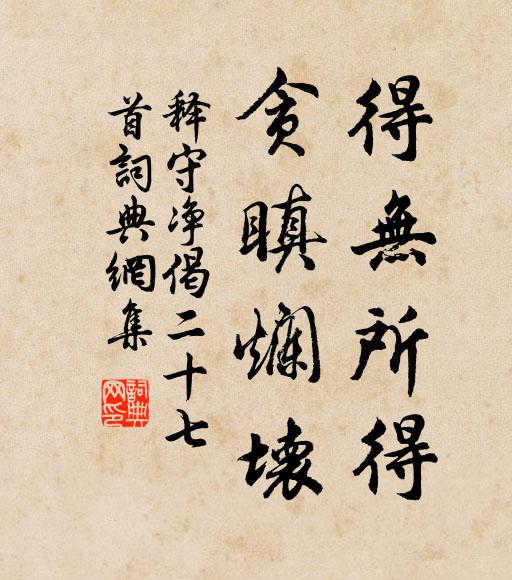 得無所得
貪瞋爛壞
释守净偈二十七
首詞典網集
詞典
网印